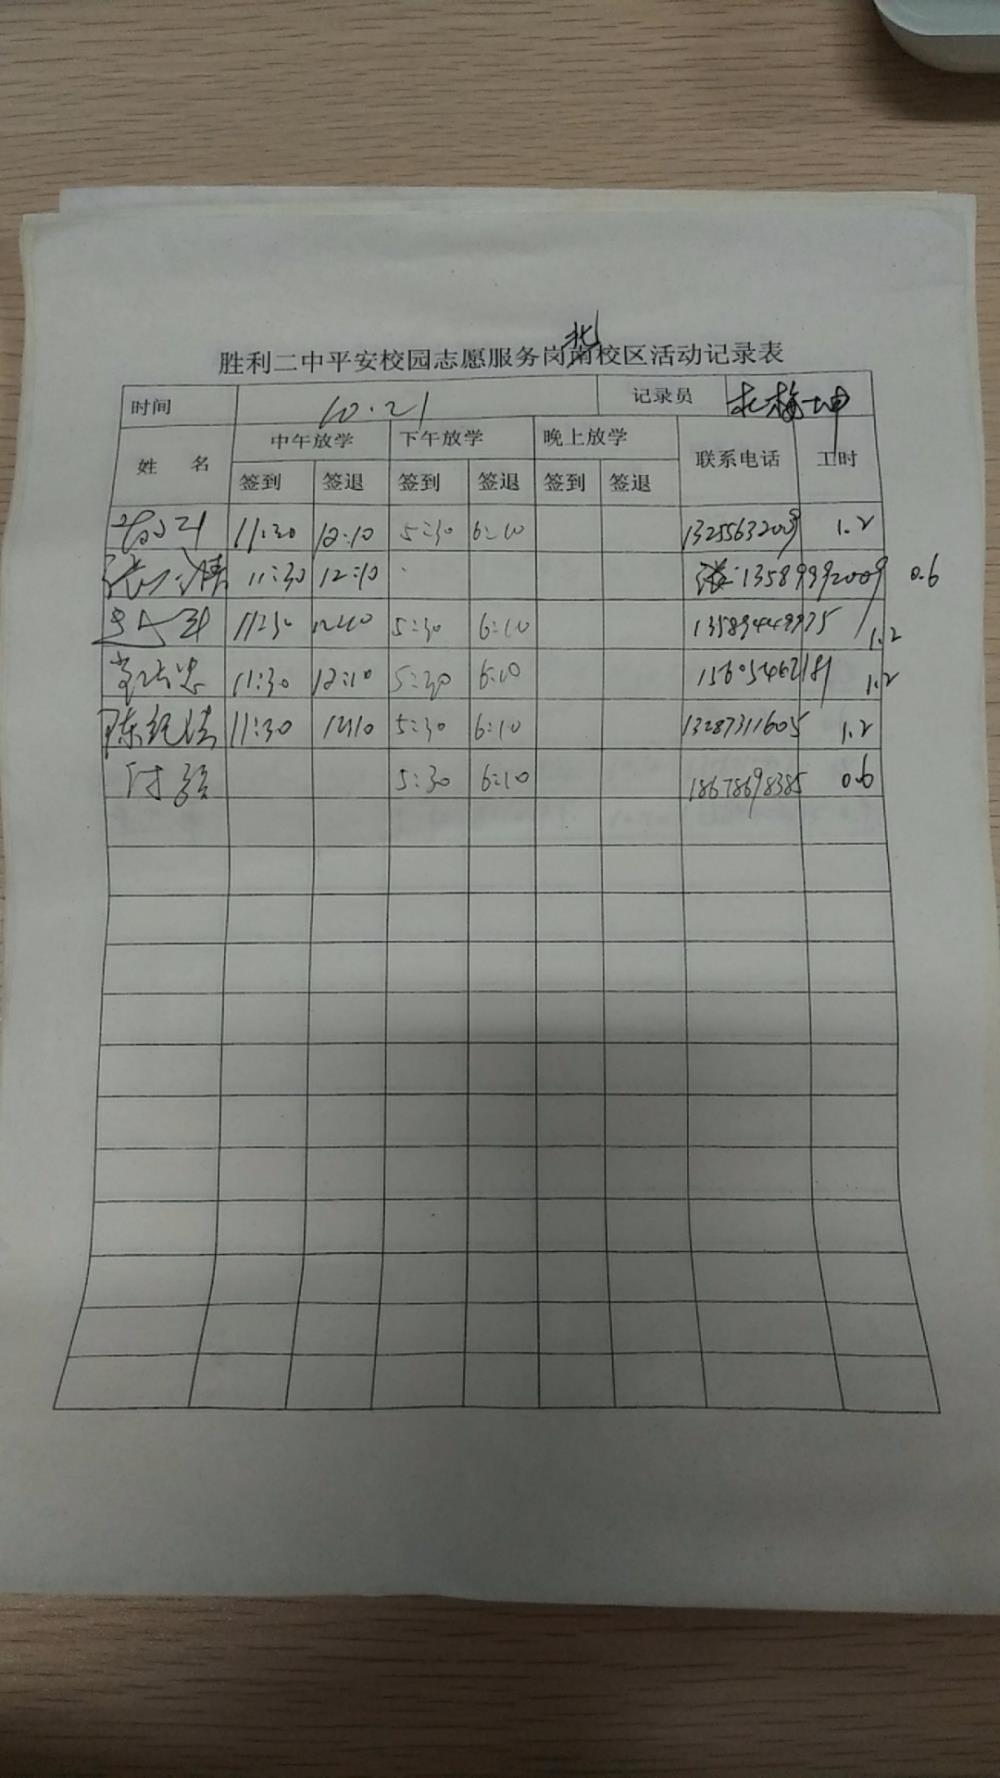 北
胜利二中平安校园志愿服务岗南校区活动记录表
时间 10.21 记录员 杜梅坤
姓 名 中午放学 下午放学 晚上放学 联系电话 工时
签到 签退 签到 签退 签到 签退
11:30 12:10 5:30 6:10 13255632009 1.2
11:30 12:10 13589992009 0.6
11:30 12:10 5:30 6:10 13589449975 1.2
11:30 12:10 5:30 6:10 15605462181 1.2
陈纪清 11:30 12:10 5:30 6:10 13287311605 1.2
付强 5:30 6:10 18678698385 0.6